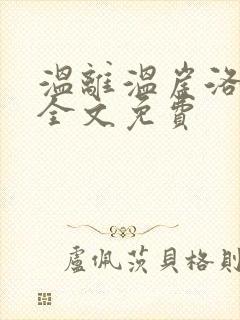 溫離溫崖洛
全文免費
盧佩茨貝格則